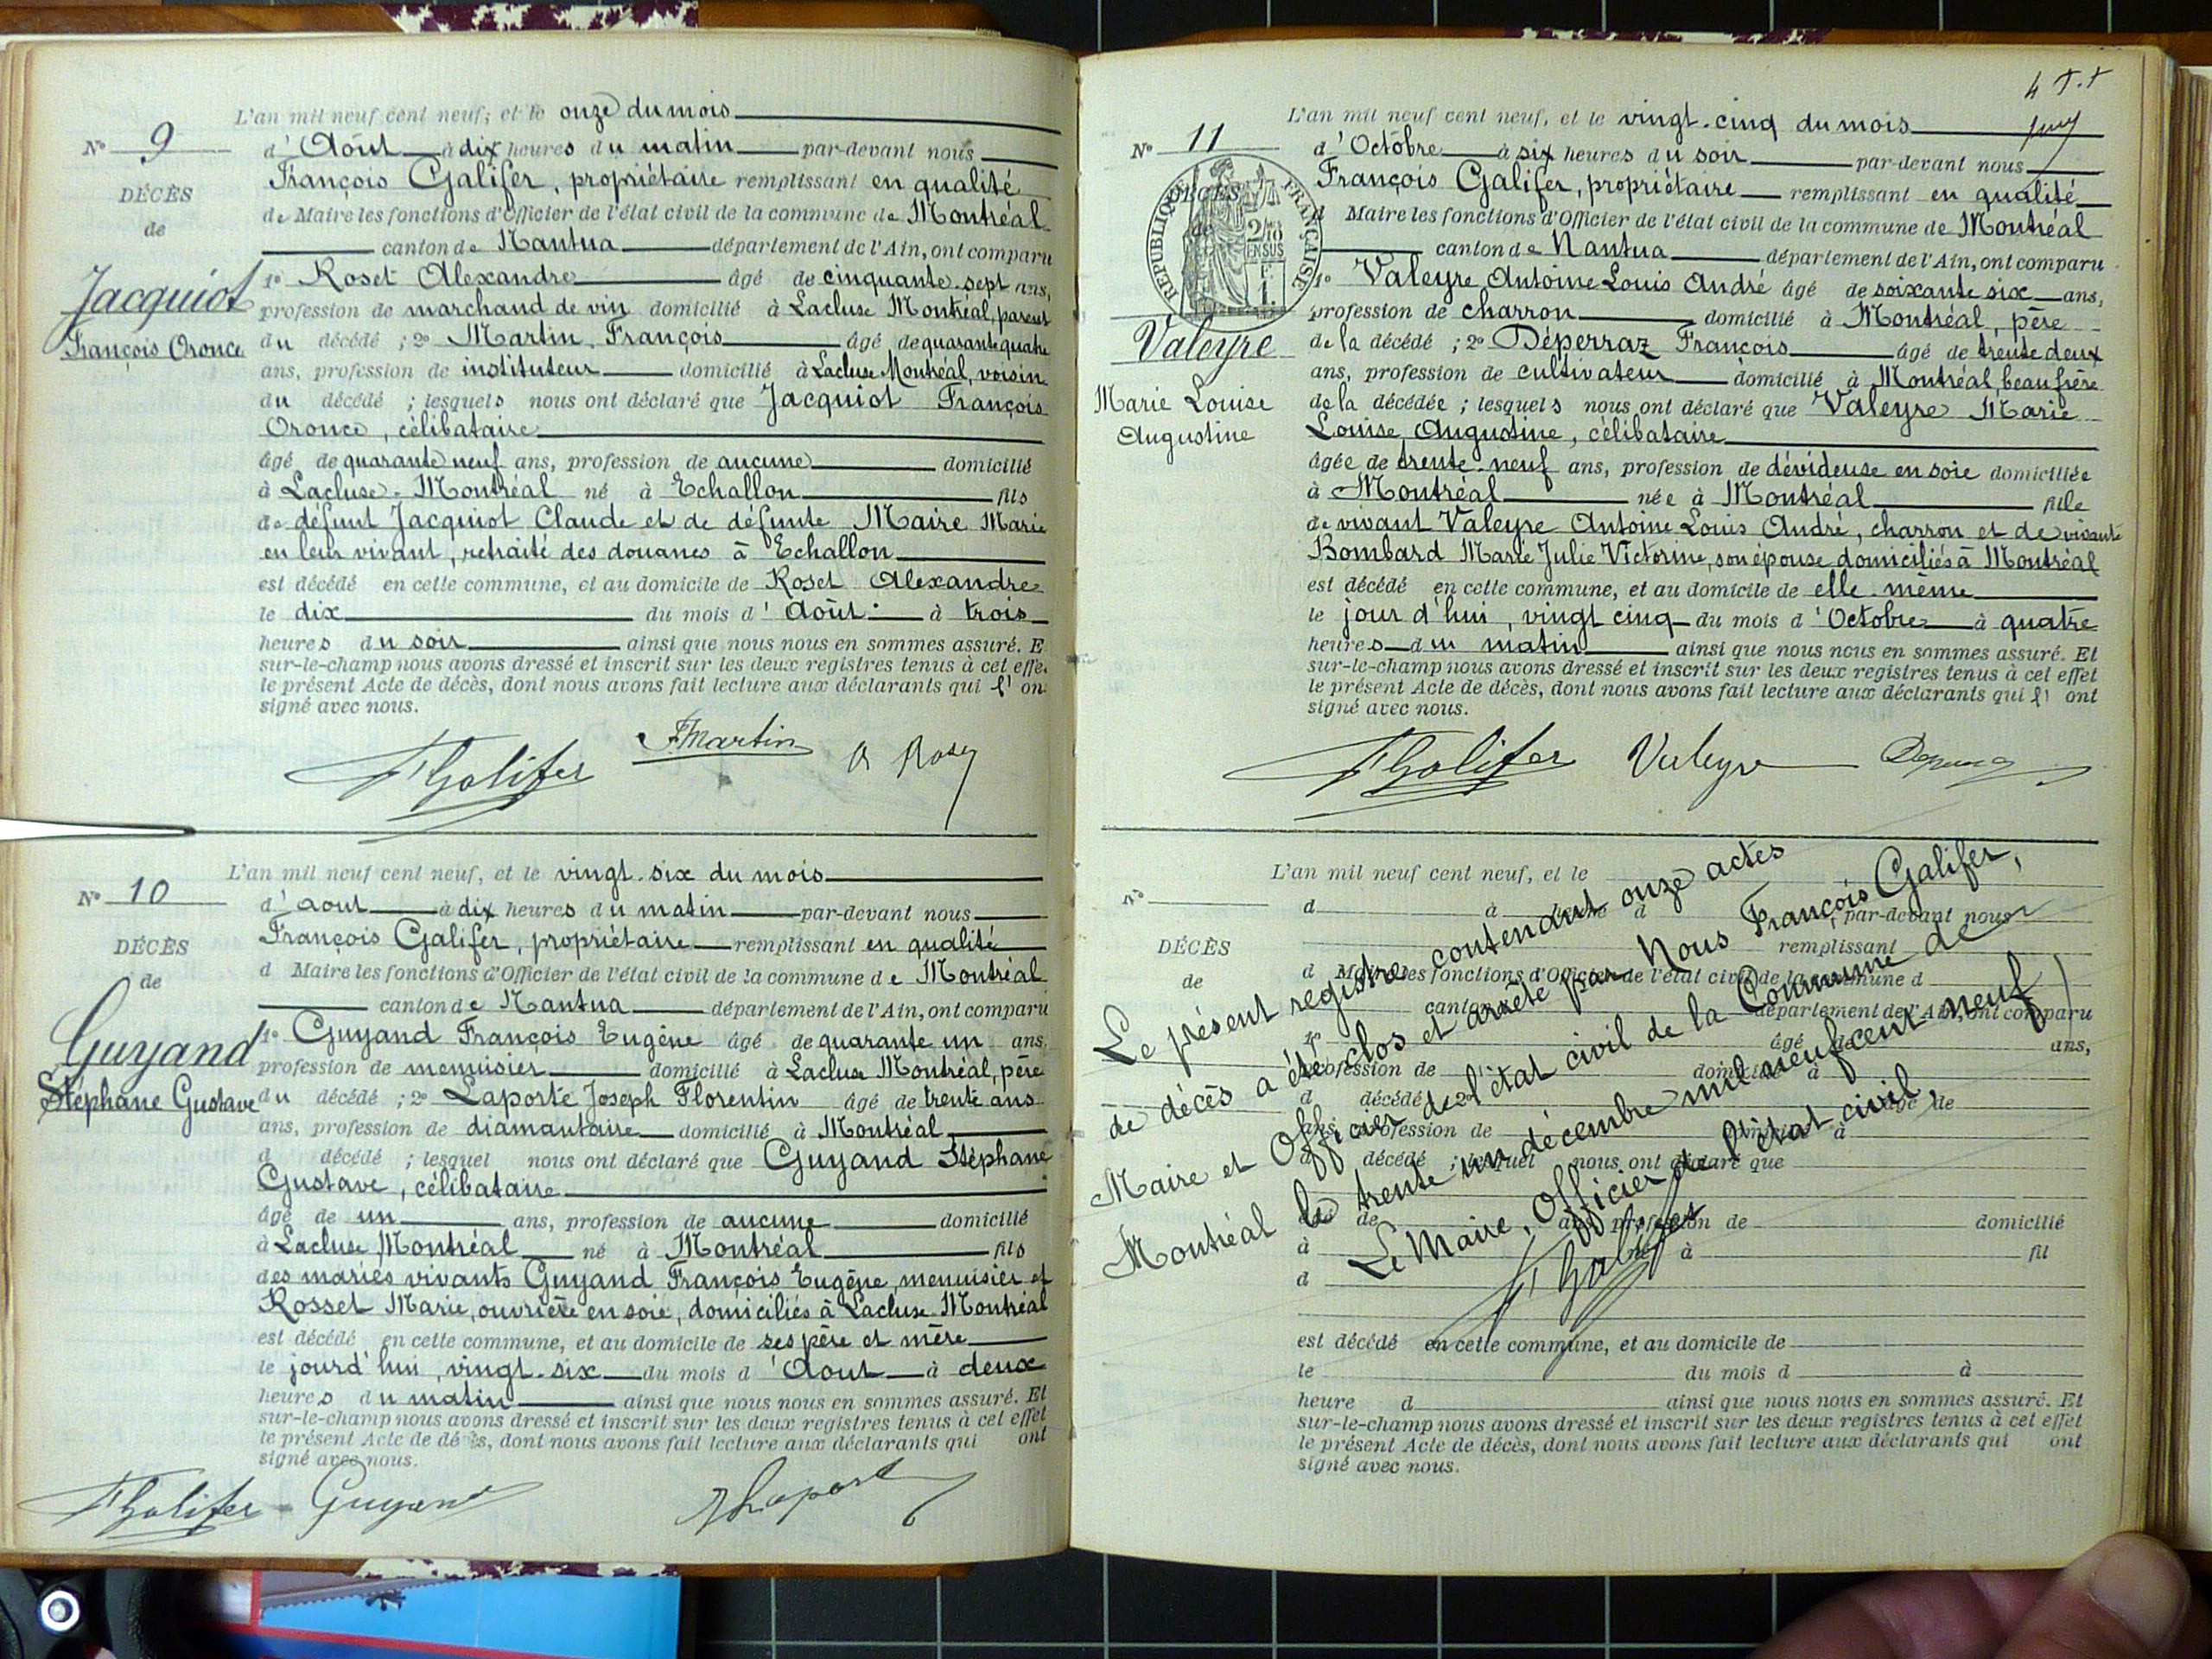 L'an mil neuf cent neuf, et le onze du mois
N° 9
d'Août à dix heures du matin par-devant nous
François Galifer, propriétaire remplissant en qualité
DÉCÈS
de Maire les fonctions d'Officier de l'état civil de la commune de Montréal
de
canton de Nantua département de l'Ain, ont comparu
Jacquiot
1° Roset Alexandre âgé de cinquante-sept ans,
profession de marchand de vin domicilié à Lacluse Montréal, parent
François Oronce
du décédé ; 2° Martin François âgé de quarante quatre
ans, profession de instituteur domicilié à Lacluse Montréal, voisin
du décédé ; lesquels nous ont déclaré que Jacquiot François
Oronce, célibataire
âgé de quarante neuf ans, profession de aucune domicilié
à Lacluse-Montréal né à Echallon fils
de défunt Jacquiot Claude et de défunte Maire Marie
en leur vivant, retraité des douanes à Echallon
est décédé en cette commune, et au domicile de Roset Alexandre
le dix du mois d'Août à trois
heures du soir ainsi que nous nous en sommes assuré. E
sur-le-champ nous avons dressé et inscrit sur les deux registres tenus à cet effe
le présent Acte de décès, dont nous avons fait lecture aux déclarants qui l'on
signé avec nous.
F Galifer F Martin A Roset
L'an mil neuf cent neuf, et le vingt-six du mois
N° 10
d'aout à dix heures du matin par-devant nous
François Galifer, propriétaire remplissant en qualité
DÉCÈS
d Maire les fonctions d'Officier de l'état civil de la commune de Montréal
de
canton de Nantua département de l'Ain, ont comparu
Guyand
1° Guyand François Eugène âgé de quarante un ans
profession de menuisier domicilié à Lacluse Montréal, père
Stéphane Gustave
du décédé ; 2° Laporte Joseph Florentin âgé de trente ans
ans, profession de diamantaire domicilié à Montréal
d décédé ; lesquel nous ont déclaré que Guyand Stéphane
Gustave, célibataire
âgé de un ans, profession de aucune domicilié
à Lacluse Montréal né à Montréal fils
des mariés vivants Guyand François Eugène, menuisier et
Rosset Marie, ouvrière en soie, domiciliés à Lacluse-Montréal
est décédé en cette commune, et au domicile de ses père et mère
le jourd'hui, vingt-six du mois d'Aout à deux
heures du matin ainsi que nous nous en sommes assuré. Et
sur-le-champ nous avons dressé et inscrit sur les deux registres tenus à cet effet
le présent Acte de décès, dont nous avons fait lecture aux déclarants qui ont
signé avec nous.
F Galifer Guyand Laporte
L'an mil neuf cent neuf, et le vingt-cinq du mois
N° 11
d'Octobre à six heures du soir par-devant nous
François Galifer, propriétaire remplissant en qualité
DÉCÈS
d Maire les fonctions d'Officier de l'état civil de la commune de Montréal
de
RÉPUBLIQUE FRANÇAISE
EN SUS
canton de Nantua département de l'Ain, ont comparu
1° Valeyre Antoine Louis André âgé de soixante six ans,
profession de charron domicilié à Montréal, père
Valeyre
de la décédé ; 2° Déperraz François âgé de trente deux
ans, profession de cultivateur domicilié à Montréal, beau frère
Marie Louise
Augustine
de la décédée ; lesquels nous ont déclaré que Valeyre Marie
Louise, Augustine, célibataire
âgée de trente-neuf ans, profession de dévideuse en soie domiciliée
à Montréal née à Montréal fille
de vivant Valeyre Antoine Louis André, charron et de vivante
Bombard Marie Julie Victorine, son épouse domiciliés à Montréal
est décédé en cette commune, et au domicile de elle-même
le jour d'hui, vingt cinq du mois d'Octobre à quatre
heures du matin ainsi que nous nous en sommes assuré. Et
sur-le-champ nous avons dressé et inscrit sur les deux registres tenus à cet effet
le présent Acte de décès, dont nous avons fait lecture aux déclarants qui l'ont
signé avec nous.
F Galifer Valeyre
L'an mil neuf cent neuf, et le
N°
d à heure d par-devant nous
remplissant
DÉCÈS
d Maire les fonctions d'Officier de l'état civil de la commune d
de
canton département de l'Ain, ont comparu
1° âgé de ans,
profession de domicilié à
d décédé ; 2° âgé de
ans, profession de domicilié à
d décédé ; lesquel nous ont déclaré que
âgé de ans, profession de domicilié
à né à fil
d
Le présent registre contenant onze actes
de décès a été clos et arrêté par Nous François Galifer,
Maire et Officier de l'état civil de la Commune de
Montréal le trente un décembre mil neuf cent neuf
Le Maire, Officier de l'état civil,
F Galifer
est décédé en cette commune, et au domicile de
le du mois d à
heure d ainsi que nous nous en sommes assuré. Et
sur-le-champ nous avons dressé et inscrit sur les deux registres tenus à cet effet
le présent Acte de décès, dont nous avons fait lecture aux déclarants qui ont
signé avec nous.